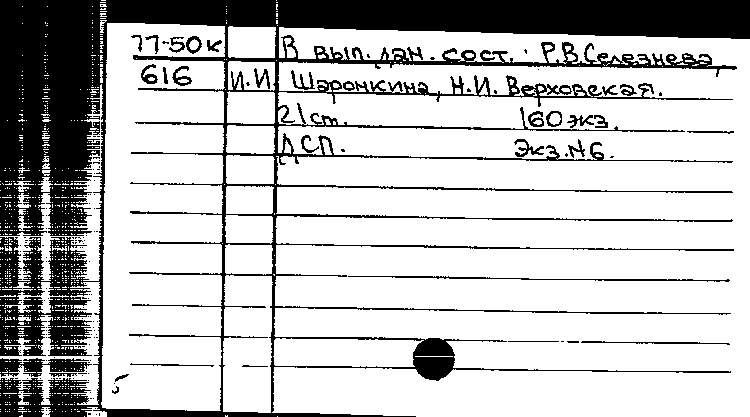 77-50к В вып. дан. сост.: Р.В.Селезнева,
616 И.И. Шаронкина, Н.И. Верховская.
21 ст. 160 экз.
ДСП. Экз.N6.
5